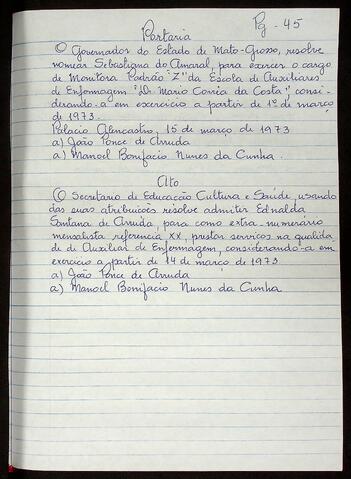 Pg - 45
Portaria
O Governador do Estado de Mato-Grosso, resolve
nomear Sebastiana do Amaral, para exercer o cargo
de Monitora Padrão "Z" da Escola de Auxiliares
de Enfermagem "Dr Mario Corrêa da Costa" consi-
derando-a em exercício a partir de 1º de março
de 1973.
Palacio Alencastro, 15 de março de 1973
a) João Ponce de Arruda
a) Manoel Bonifacio Nunes da Cunha.
Ato
O Secretario de Educação Cultura e Saúde, usando
das suas atribuicões resolve admitir Edinalda
Santana de Arruda, para como extra-numerário
mensalista referência XX, prestar serviços na qualida
de de Auxiliar de Enfermagem, considerando-a em
exercício a partir de 14 de março de 1973
a) João Ponce de Arruda
a) Manoel Bonifacio Nunes da Cunha